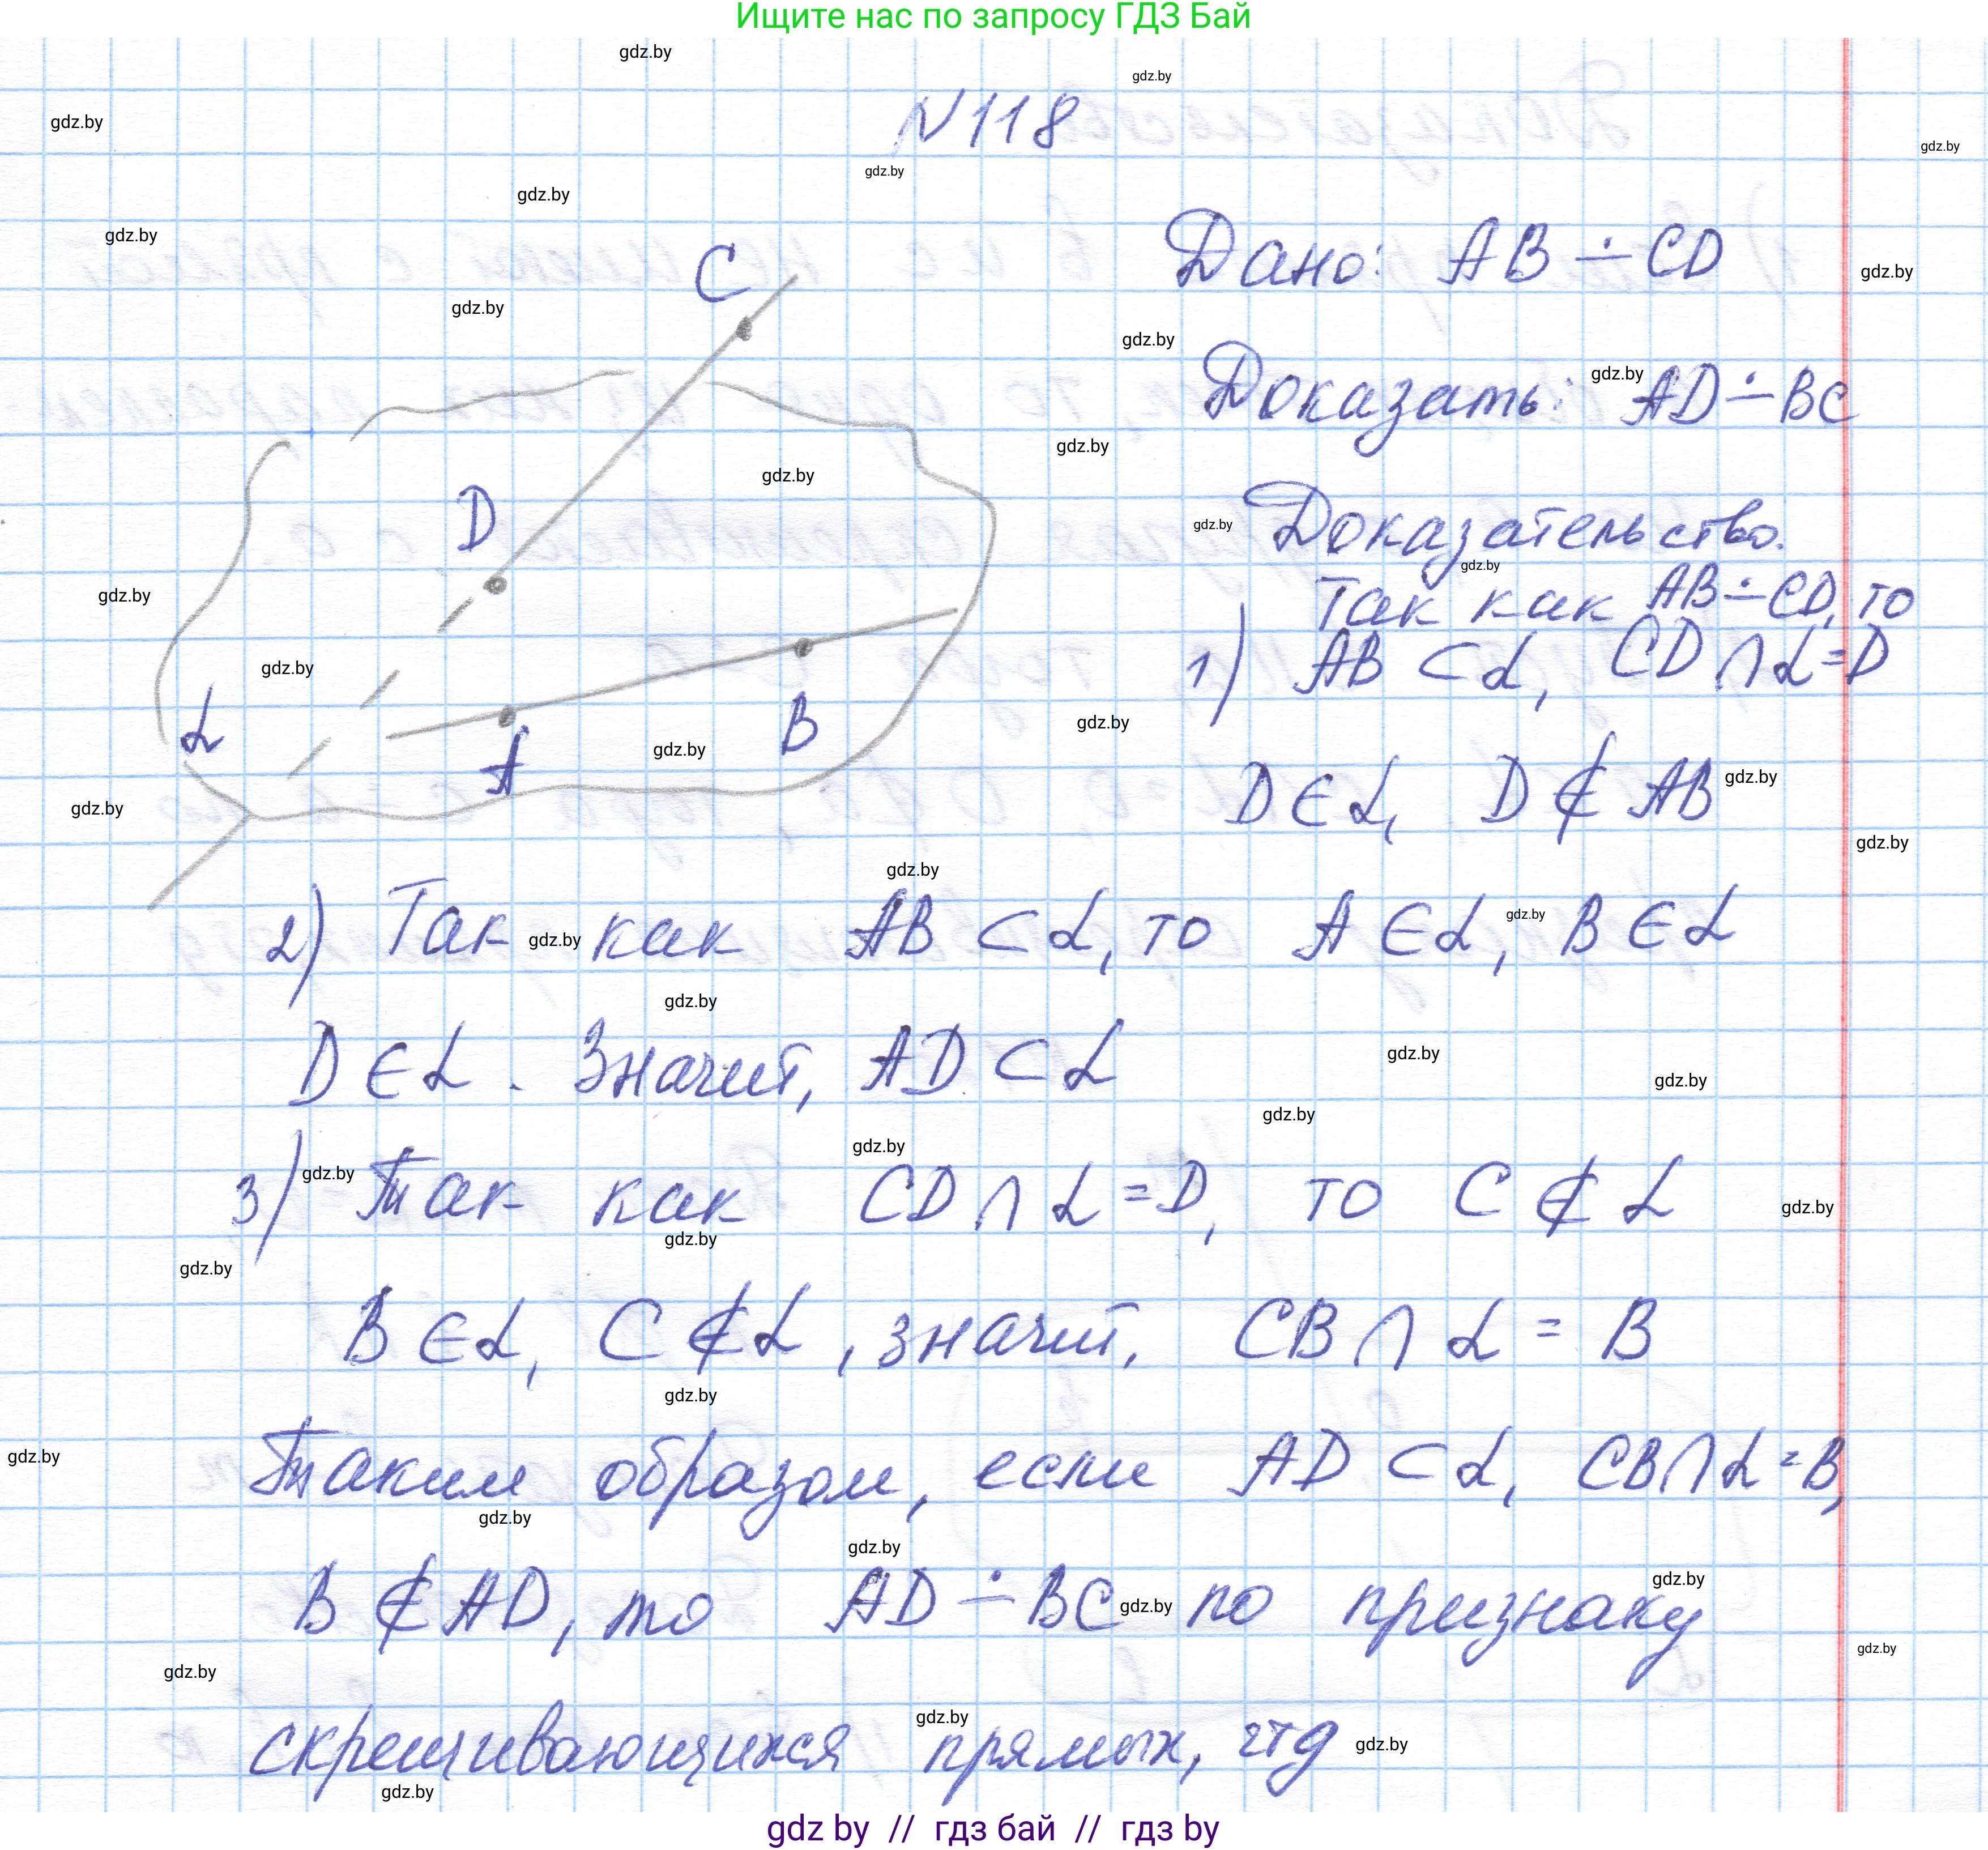 Ищите нас по запросу ГДЗ Бай
N118
Дано: AB ∸ CD
Доказать: AD ∸ BC
Доказательство.
Так как AB ∸ CD, то
1) AB ⊂ α, CD ∩ α = D
D ∈ α, D ∉ AB
C
D
α
A
B
2) Так как AB ⊂ α, то A ∈ α, B ∈ α
D ∈ α. Значит, AD ⊂ α
3) Так как CD ∩ α = D, то C ∉ α
B ∈ α, C ∉ α, значит, CB ∩ α = B
Таким образом, если AD ⊂ α, CB ∩ α = B,
B ∉ AD, то AD ∸ BC по признаку
скрещивающихся прямых, чтд
gdz.by
gdz by // гдз бай // гдз by